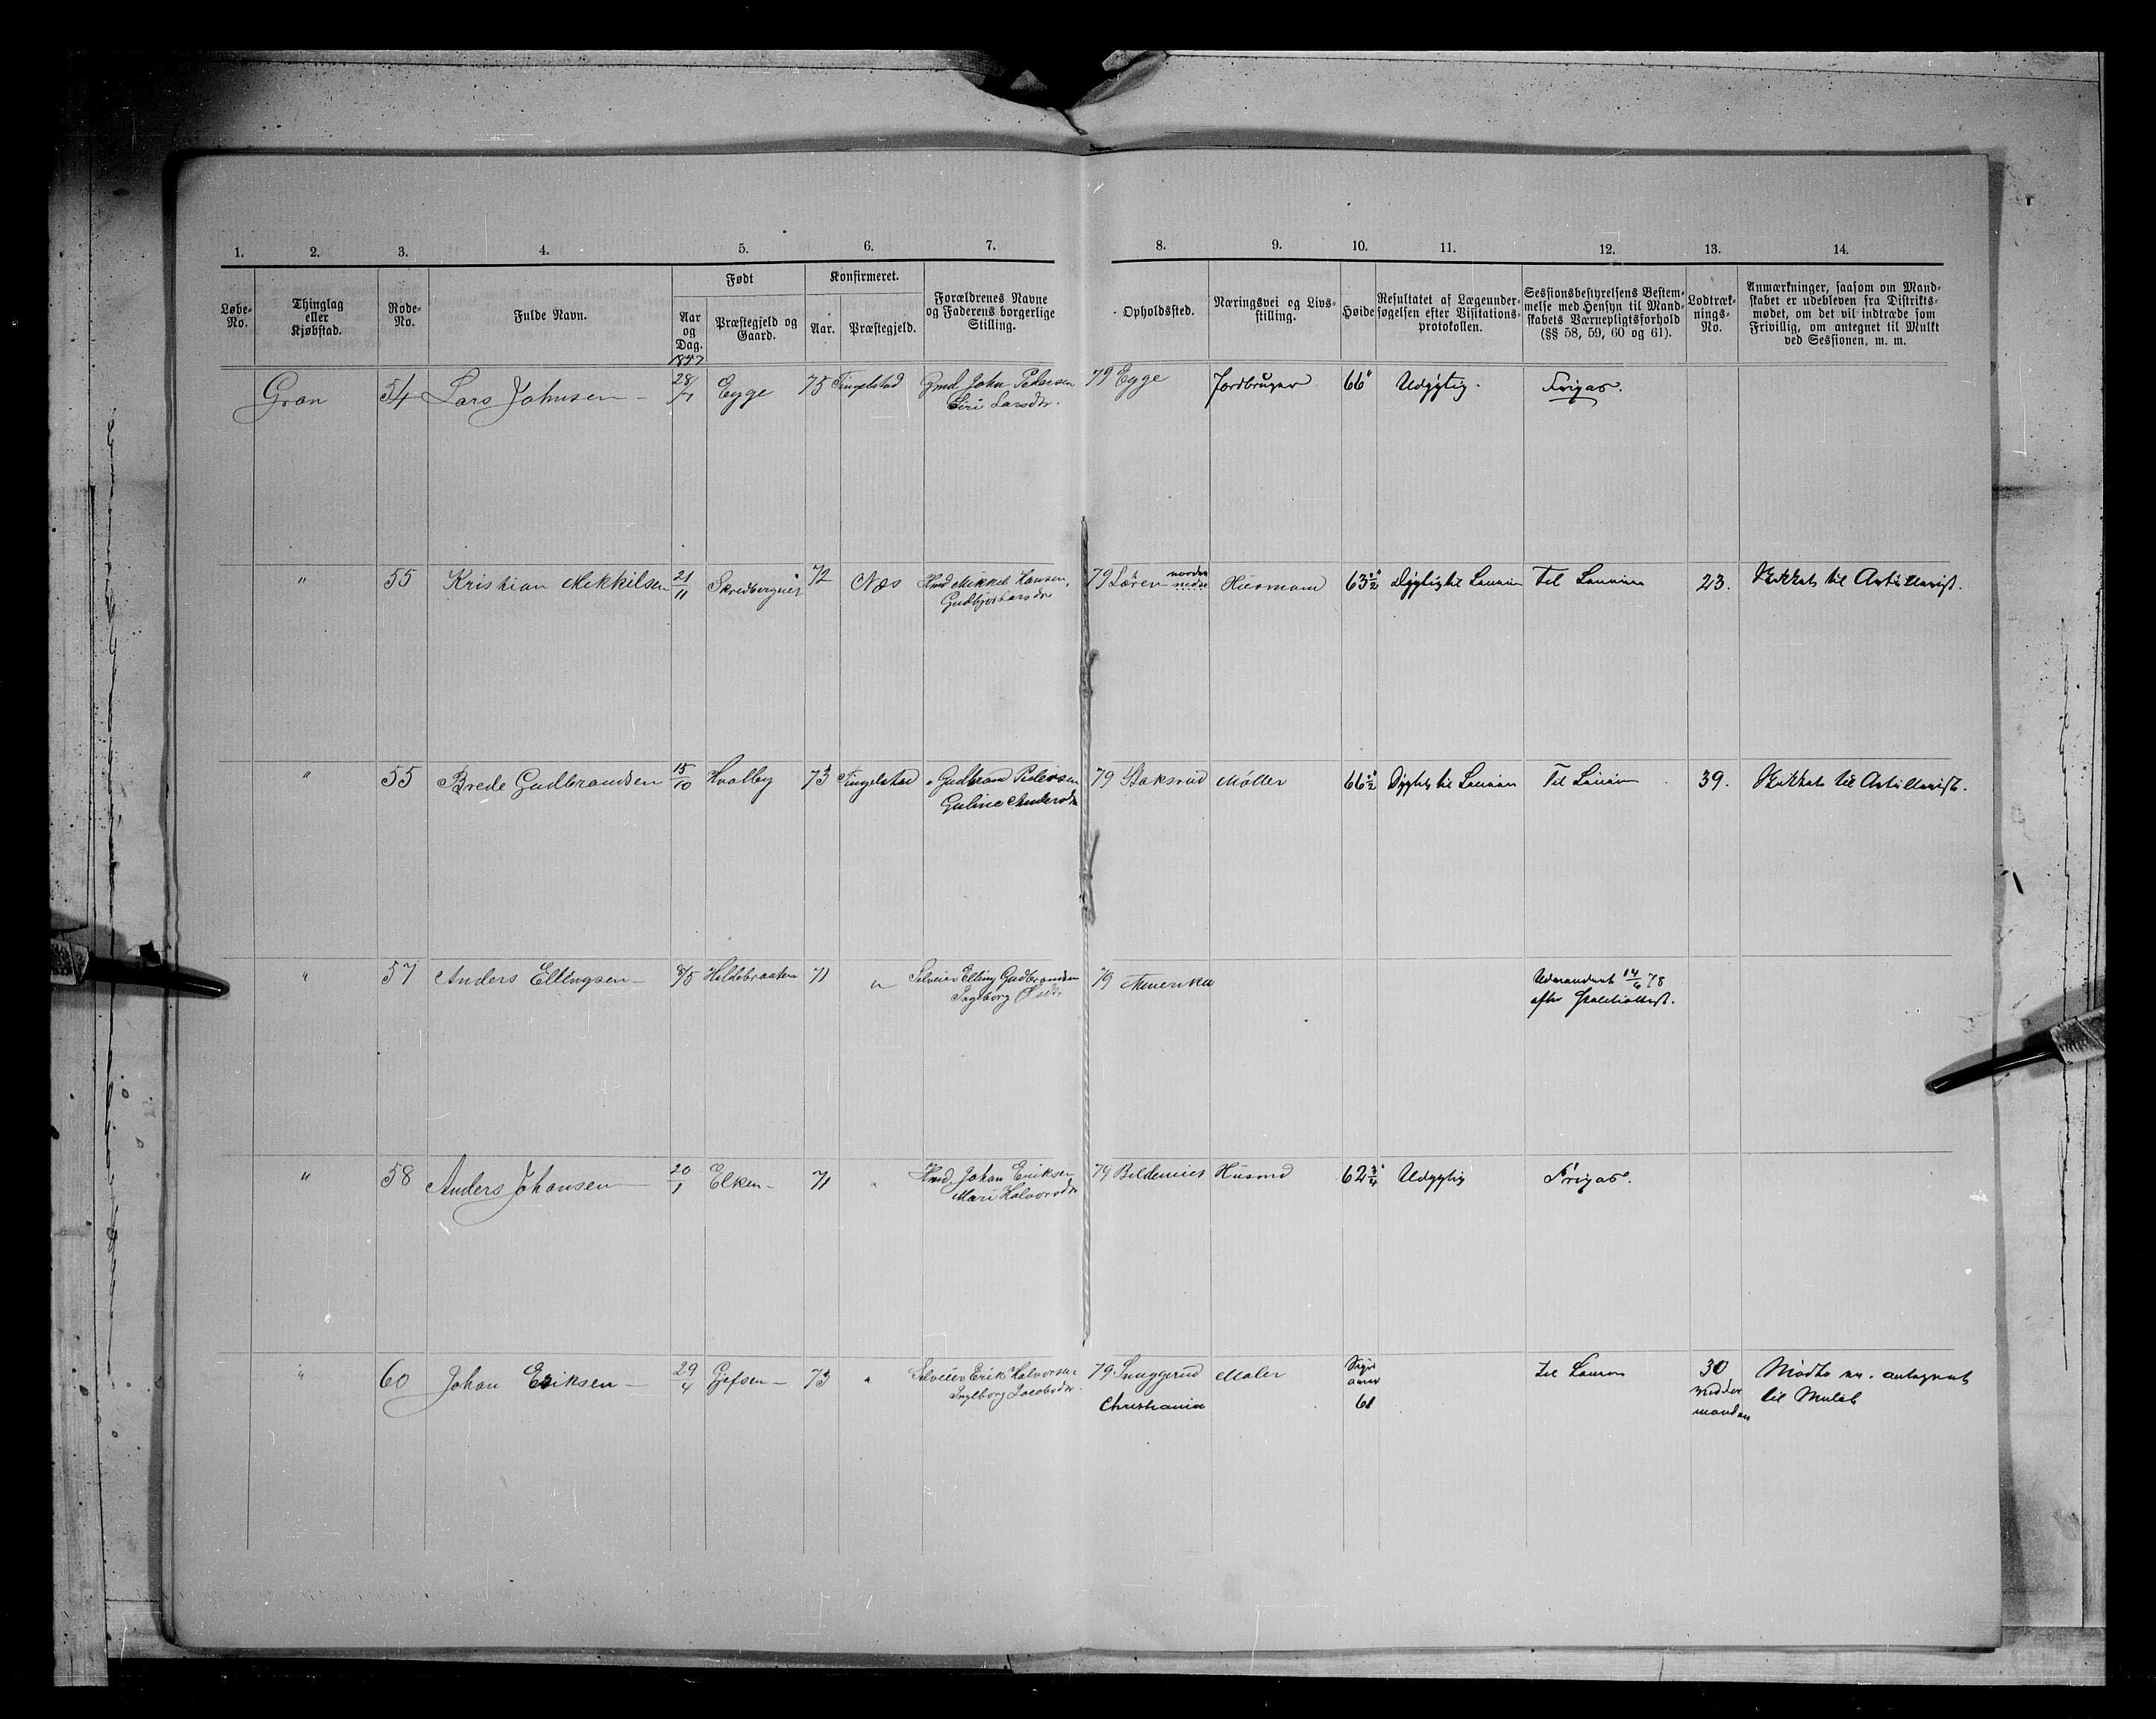 1. 2. 3. 4. 5. 6. 7. 8. 9. 10. 11. 12. 13. 14.
Løbe-No.
Thinglag eller Kjøbstad.
Rode-No.
Fulde Navn.
Født
Aar og Dag.
Præstegjeld og Gaard.
Konfirmeret.
Aar.
Præstegjeld.
Forældrenes Navne og Faderens borgerlige Stilling.
Opholdssted.
Næringsvei og Livsstilling.
Høide
Resultatet af Lægeundersøgelsen efter Visitationsprotokollen.
Sessionsbestyrelsens Bestemmelse med Hensyn til Mandskabets Værnepligtsforhold (§§ 58, 59, 60 og 61).
Lodtræknings-No.
Anmærkninger, saasom om Mandskabet er udebleven fra Distriktsmødet, om det vil indtræde som Frivillig, om antegnet til Mulkt ved Sessionen, m. m.
1857
Gran 54 Lars Johnsen 28/7 Egge 75 Tingelstad Gmd John Pedersen 79 Egge Jordbruger 66" Udygtig. Frigar.
Siri Larsdtr.
" 55 Kristian Mikkilsen 21/11 72 Næs Hmd Mikkel Hansen, 79 Søren nordre nedre Huusmand 63 1/2" Dygtig til Linien Til Linien 23. Skikket til Artillerist.
Gudbjør Larsdtr
" 55 Brede Gudbrandsen 15/10 Hvalby 73 Tingelstad " Gudbrand Pedersen 79 Staksrud Møller 66 1/2" Dygtig til Linien Til Linien 39. Skikket til Artillerist.
Guline Andersdtr
" 57 Anders Ellingsen 8/5 Hildebraaten 71 " Selveier Elling Gudbrandsen 79 Amerika Udvandret 14/6 78
Ingeborg efter
" 58 Anders Johansen 20/1 Elken 71 " Hmd Johan Eriksen, 79 Husmd 62 3/4" Udygtig Frigar.
Mari Halvorsdtr
" 60 Johan Eriksen 29/4 Gjefsen 73 " Selveier Erik Halvorsen 79 Maler til Linien 30 Mødte ei. antegnet
Ingeborg Jacobsdtr. Christiania 61 til Mulct